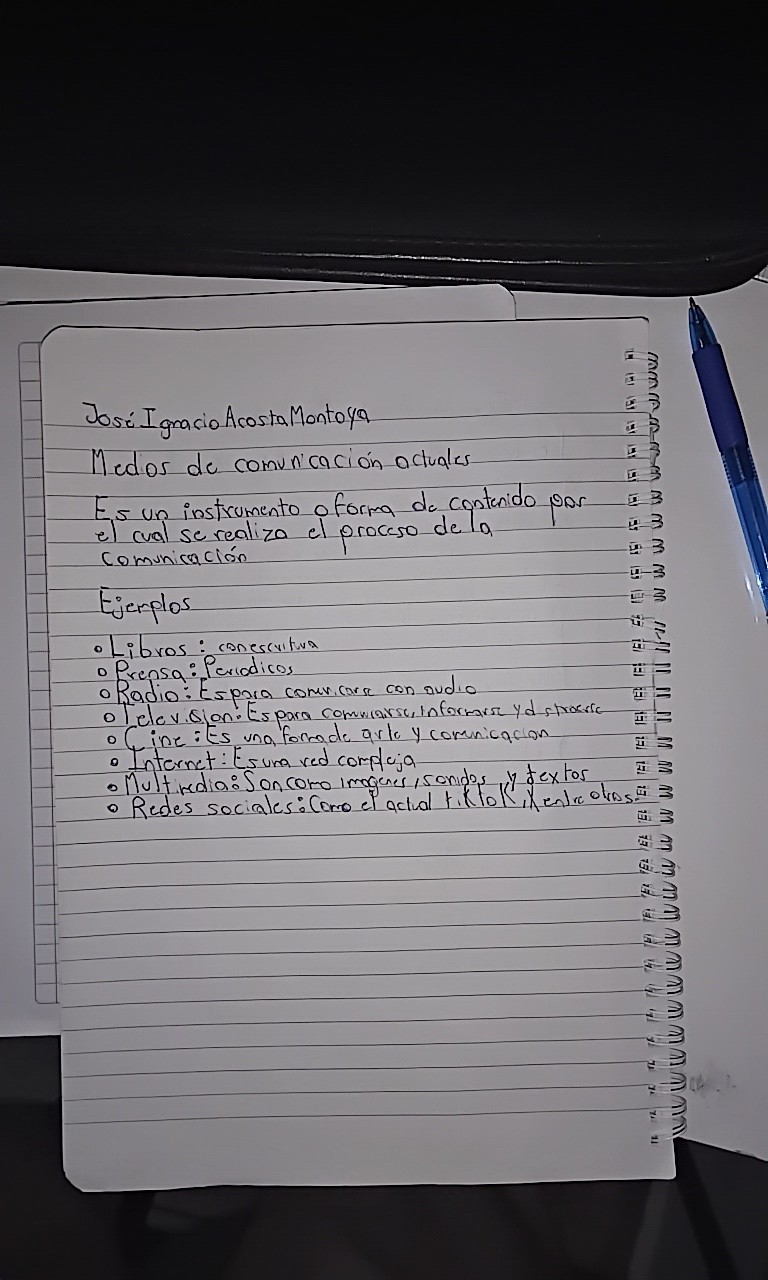 José Ignacio Acosta Montoya
Medios de comunicación actuales
Es un instrumento o forma de contenido por
el cual se realiza el proceso de la
comunicación
Ejemplos
Libros: con escritura
Prensa: Periodicos
Radio: Es para comunicarse con audio
Television: Es para comunicarse, Informarse y distraerse
Cine: Es una forma de arte y comunicacion
Internet: Es una red compleja
Multimedia: Son como imagenes, sonidos y textos
Redes sociales: Como el actual tiktok, X entre otros.